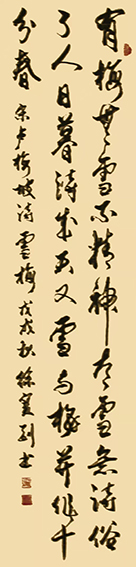 有梅无雪不精神有雪无诗俗
了人日暮诗成天又雪与梅并作十
分春 宋卢梅坡诗雪梅 戊戌秋 徐宝刚书